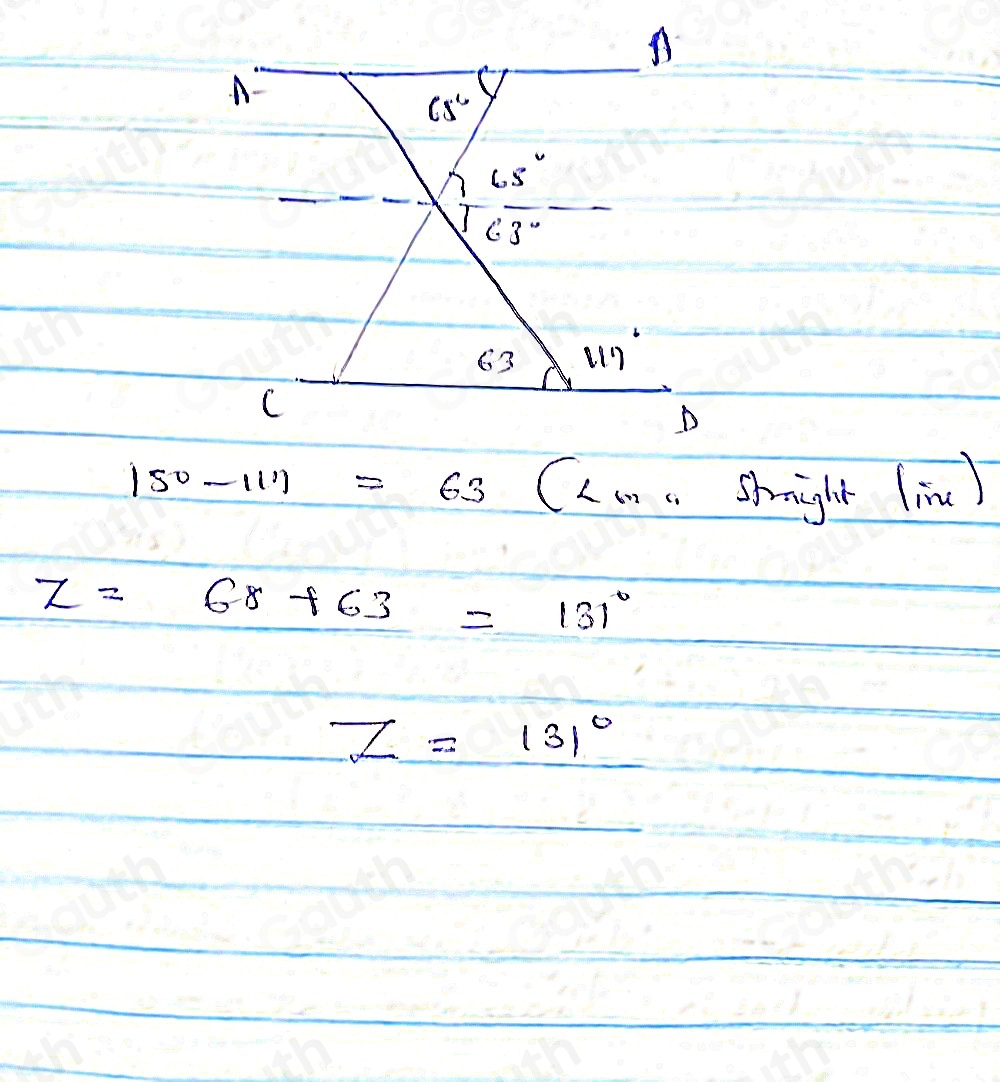 A B
68°
68°
63°
63 117°
C D
180 - 117 = 63 (∠ on a straight line)
Z = 68 + 63 = 131°
Z = 131°